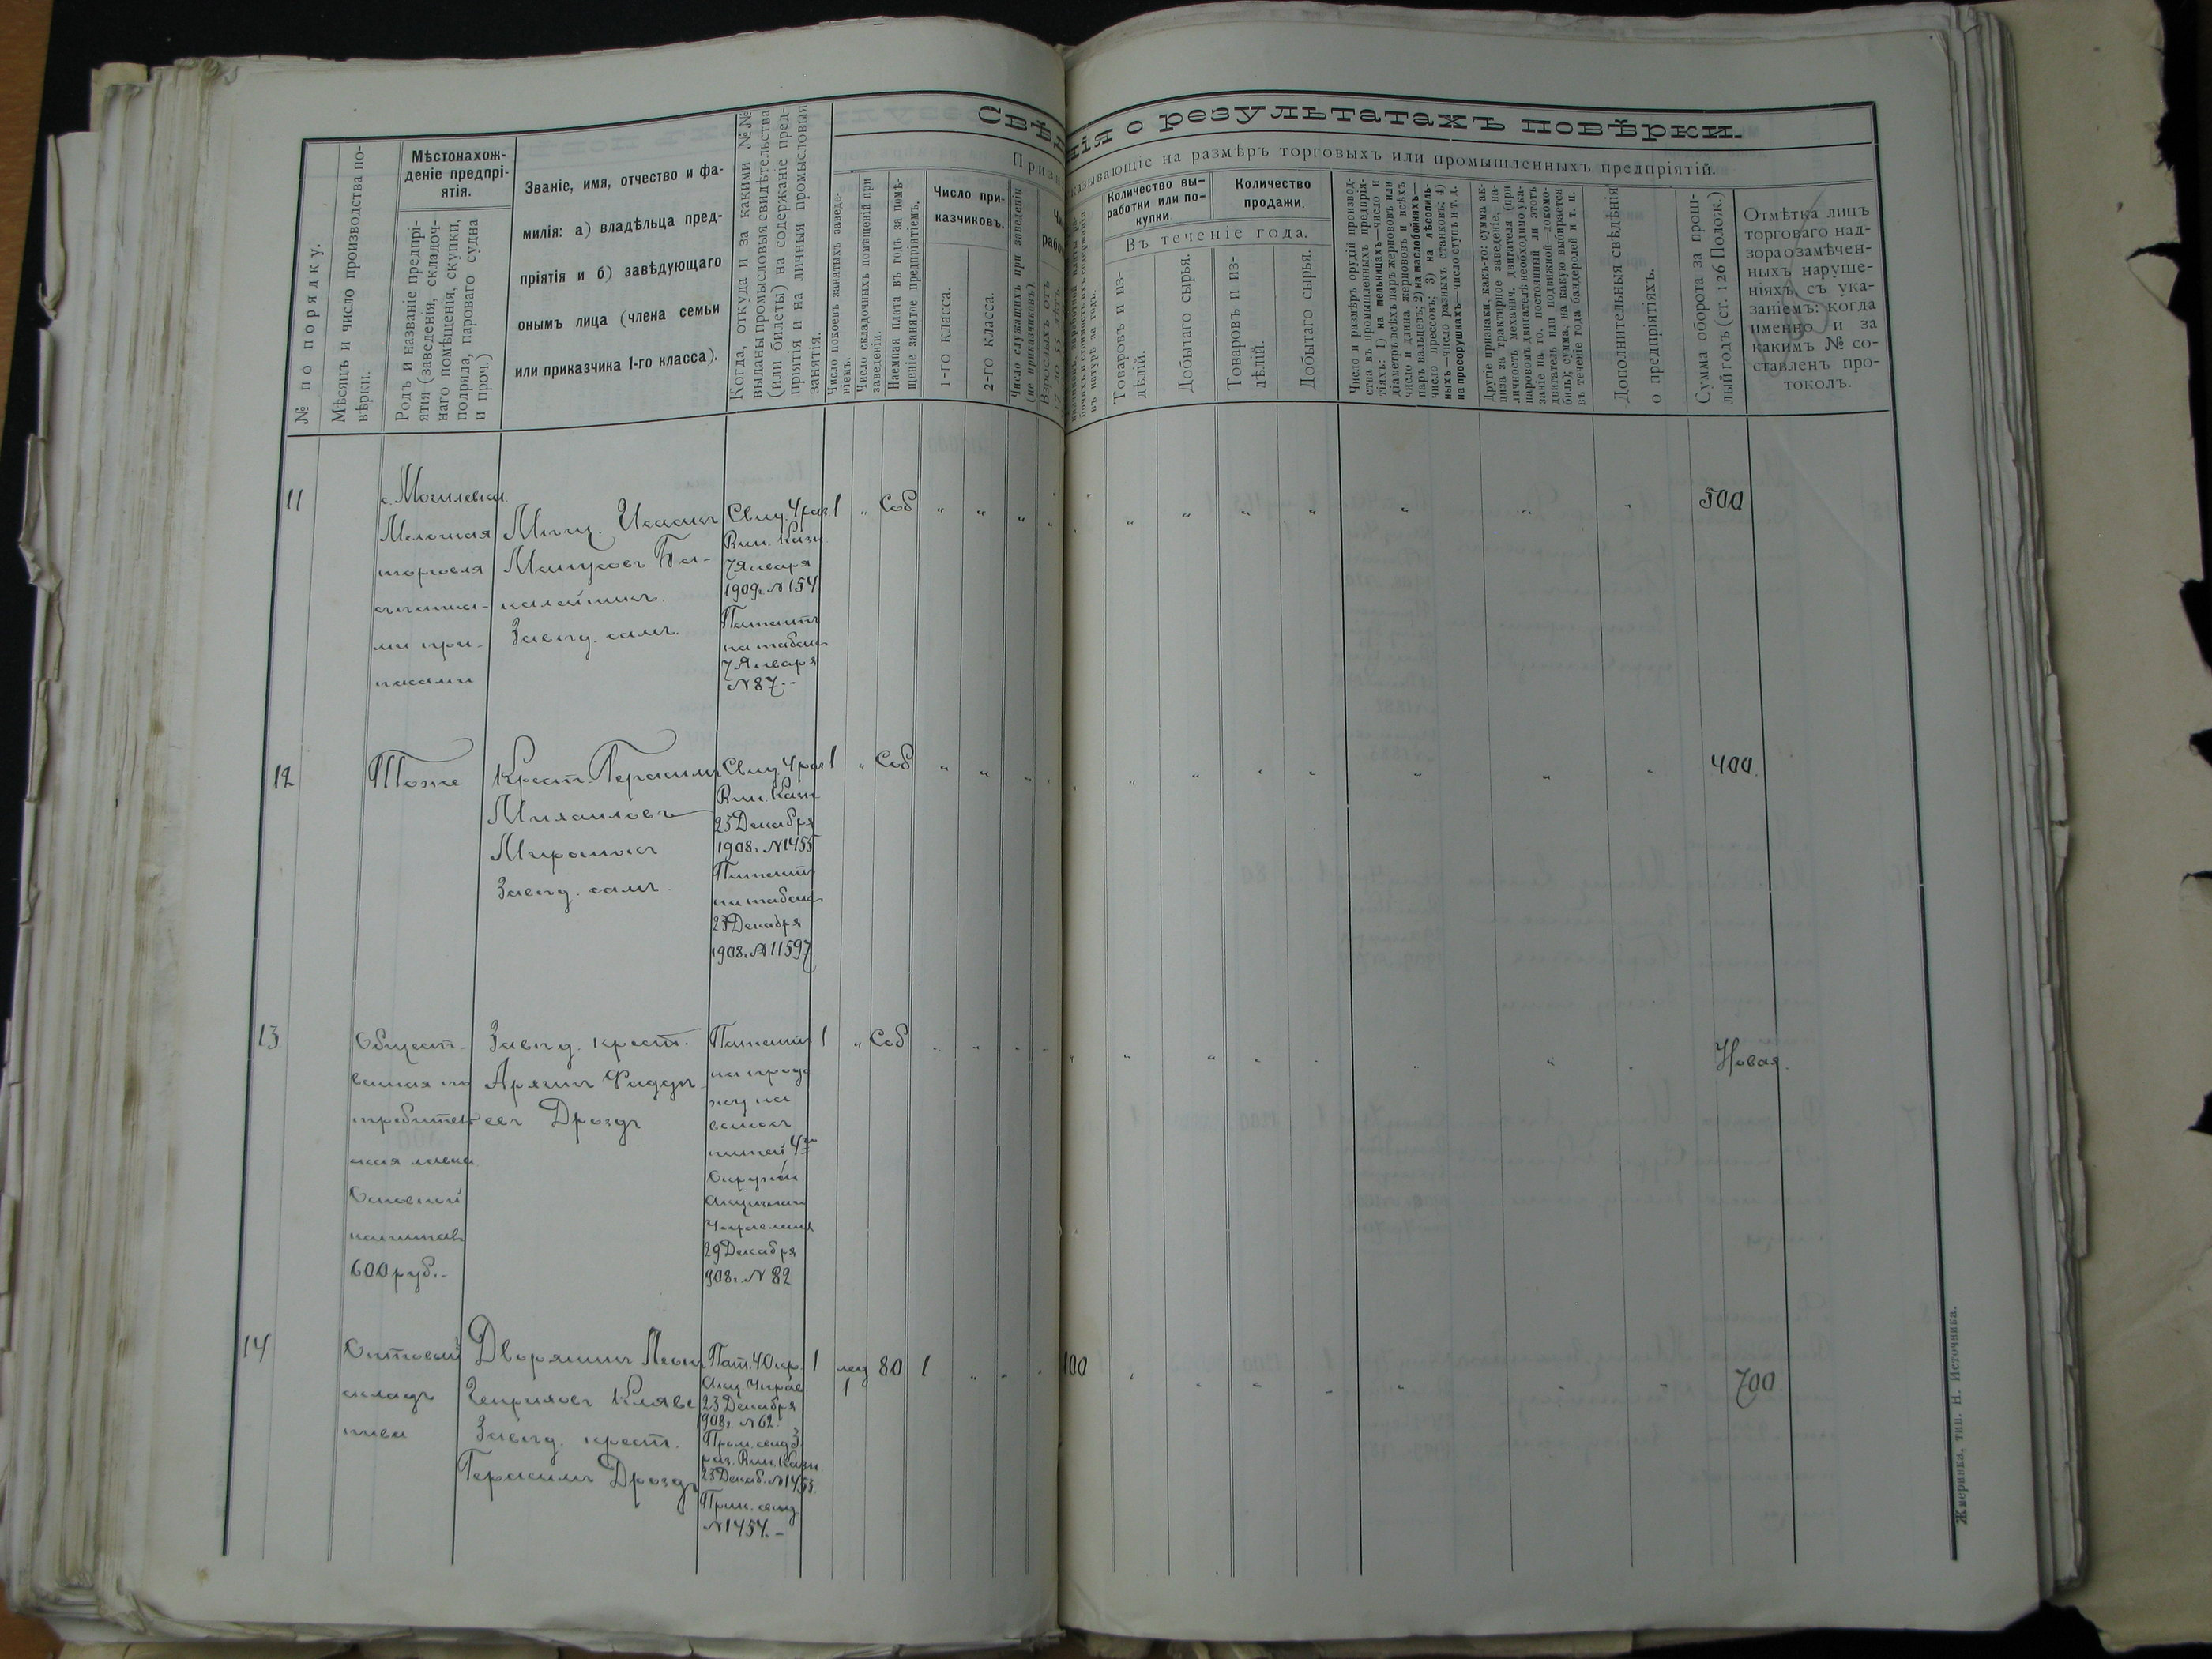 Свѣдѣнія о результатахъ повѣрки.
№ по порядку.
Мѣсяцъ и число производства по-
вѣрки.
Мѣстонахож-
деніе предпрі-
ятія.
Родъ и названіе предпрі-
ятія (заведенія, складоч-
наго помѣщенія, скупки,
подряда, пароваго судна
и проч.)
Званіе, имя, отчество и фа-
милія: а) владѣльца пред-
пріятія и б) завѣдующаго
онымъ лица (члена семьи
или приказчика 1-го класса).
Когда, откуда и за какими №№
выданы промысловыя свидѣтельства
(или билеты) на содержаніе пред-
пріятія и на личныя промысловыя
занятія.
Число покоевъ занятыхъ заведе-
ніемъ.
Число складочныхъ помѣщеній при
заведеніи.
Наемная плата въ годъ за помѣ-
щеніе занятое предпріятіемъ.
Число при-
казчиковъ.
1-го класса.
2-го класса.
Число служащихъ при заведеніи
(не приказчиковъ).
Взрослыхъ отъ
17 до 55 лѣтъ.
казывающіе на размѣръ торговыхъ или промышленныхъ предпріятій.
Количество вы-
работки или по-
купки.
Количество
продажи.
Въ теченіе года.
Товаровъ и из-
дѣлій.
Добытаго сырья.
Товаровъ и из-
дѣлій.
Добытаго сырья.
Число и размѣръ орудій производ-
ства въ промышленныхъ предпрія-
тіяхъ: 1) на мельницахъ—число и
діаметръ всѣхъ паръ жернововъ или
число и длина жернововъ и всѣхъ
паръ вальцевъ; 2) на маслобойняхъ—
число прессовъ; 3) на лѣсопиль-
ныхъ—число разныхъ станковъ; 4)
на просорушкахъ—число ступъ и т. д.
Другіе признаки, какъ-то: сумма ак-
циза за трактирное заведеніе, на-
личность механич. двигателя (при
паровомъ двигателѣ необходимо ука-
заніе на то, постоянный ли этотъ
двигатель или подвижной—локомо-
биль); сумма, на какую выбирается
въ теченіе года бандеролей и т. п.
Дополнительныя свѣдѣнія
о предпріятіяхъ.
Сумма оборота за прош-
лый годъ (ст. 126 Полож.)
Отмѣтка лицъ
торговаго над-
зора о замѣчен-
ныхъ наруше-
ніяхъ, съ ука-
заніемъ: когда
именно и за
какимъ № со-
ставленъ про-
токолъ.
11
с. Могилевка
Мелочная
торговля
съѣстны-
ми при-
пасами
Мѣщ.
Завѣд. самъ.
Свид. 4 раз.
Вин. Казн.
7 Января
1909г. № 154
Патентъ
на табакъ
7 Января
№ 87.-
1 „ Соб „ „ „
500
12
Тоже
Крест. Герасимъ
Михайловъ
Завѣд. самъ.
Свид. 4 раз.
Вин. Казн.
23 Декабря
1908г. № 1455
Патентъ
на табакъ
23 Декабря
1908г. № 11597
1 „ Соб „ „
400.
13
Общест-
венная по
требитель
ская лавка
Основной
капиталъ
600 руб.-
Завѣд. крест.
Фадде-
евъ Дроздъ
Патентъ
на прода
жу
питей 4го
Окружн.
Акцизнаго
Управленія
29 Декабря
908г. № 82
1 „ Соб
Новая.
14
Оптовый
складъ
пива
Дворянинъ Леонъ
Генриховъ
Завѣд. крест.
Герасимъ Дроздъ
Пат. 4 Окр.
Акц. Управ.
23 Декабря
1908г. № 62.
Пром. свид 3
раз. Вин. Казн.
23 Декаб. № 1453.
Прик. свид.
№ 1454.-
1 лед 1 80 1
100
700
Жмеринка, тип. Н. Источника.